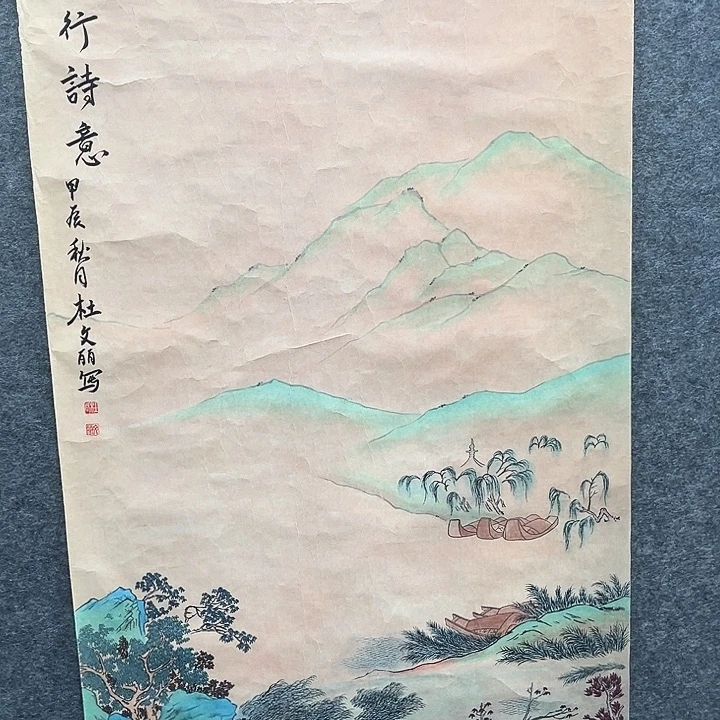 行詩意甲辰秋月杜文丽写